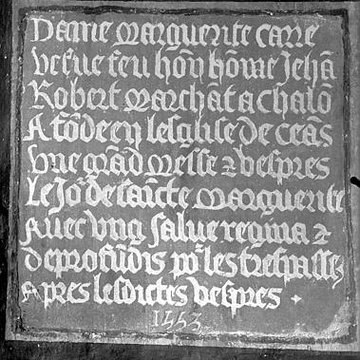 Dame marguerite carre
vefue feu hōn hōme Jehā
Robert marchāt a chalō
A fōde en lesglise de ceās
vne grād messe ⁊ vespres
le Jōr de saincte marguerite
Auec vng salue regina ⁊
de profūdis por les trespassez
apres lesdictes vespres
1553